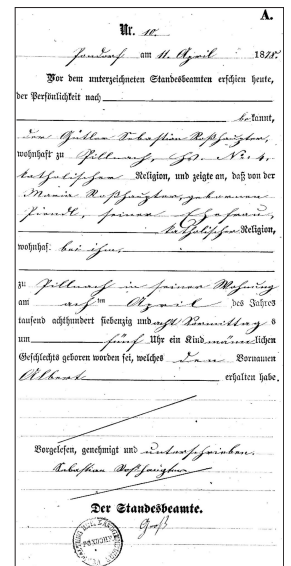 A.
Nr. 10.
Pondorf am 11. April 1878.
Vor dem unterzeichneten Standesbeamten erschien heute,
der Persönlichkeit nach
bekannt,
der Gütler Sebastian Roßhaupter,
wohnhaft zu Pillnach, Hs. No. 4,
katholischer Religion, und zeigte an, daß von der
Maria Roßhaupter, geborenen
Piendl, seiner Ehefrau,
katholischer Religion,
wohnhaft bei ihm,
zu Pillnach in seiner Wohnung
am acht ten April des Jahres
tausend achthundert siebenzig und acht Vormittag s
um fünf Uhr ein Kind männlichen
Geschlechts geboren worden sei, welches den Vornamen
Albert erhalten habe.
Vorgelesen, genehmigt und unterschrieben.
Sebastian Roßhaupter
Der Standesbeamte.
Groß